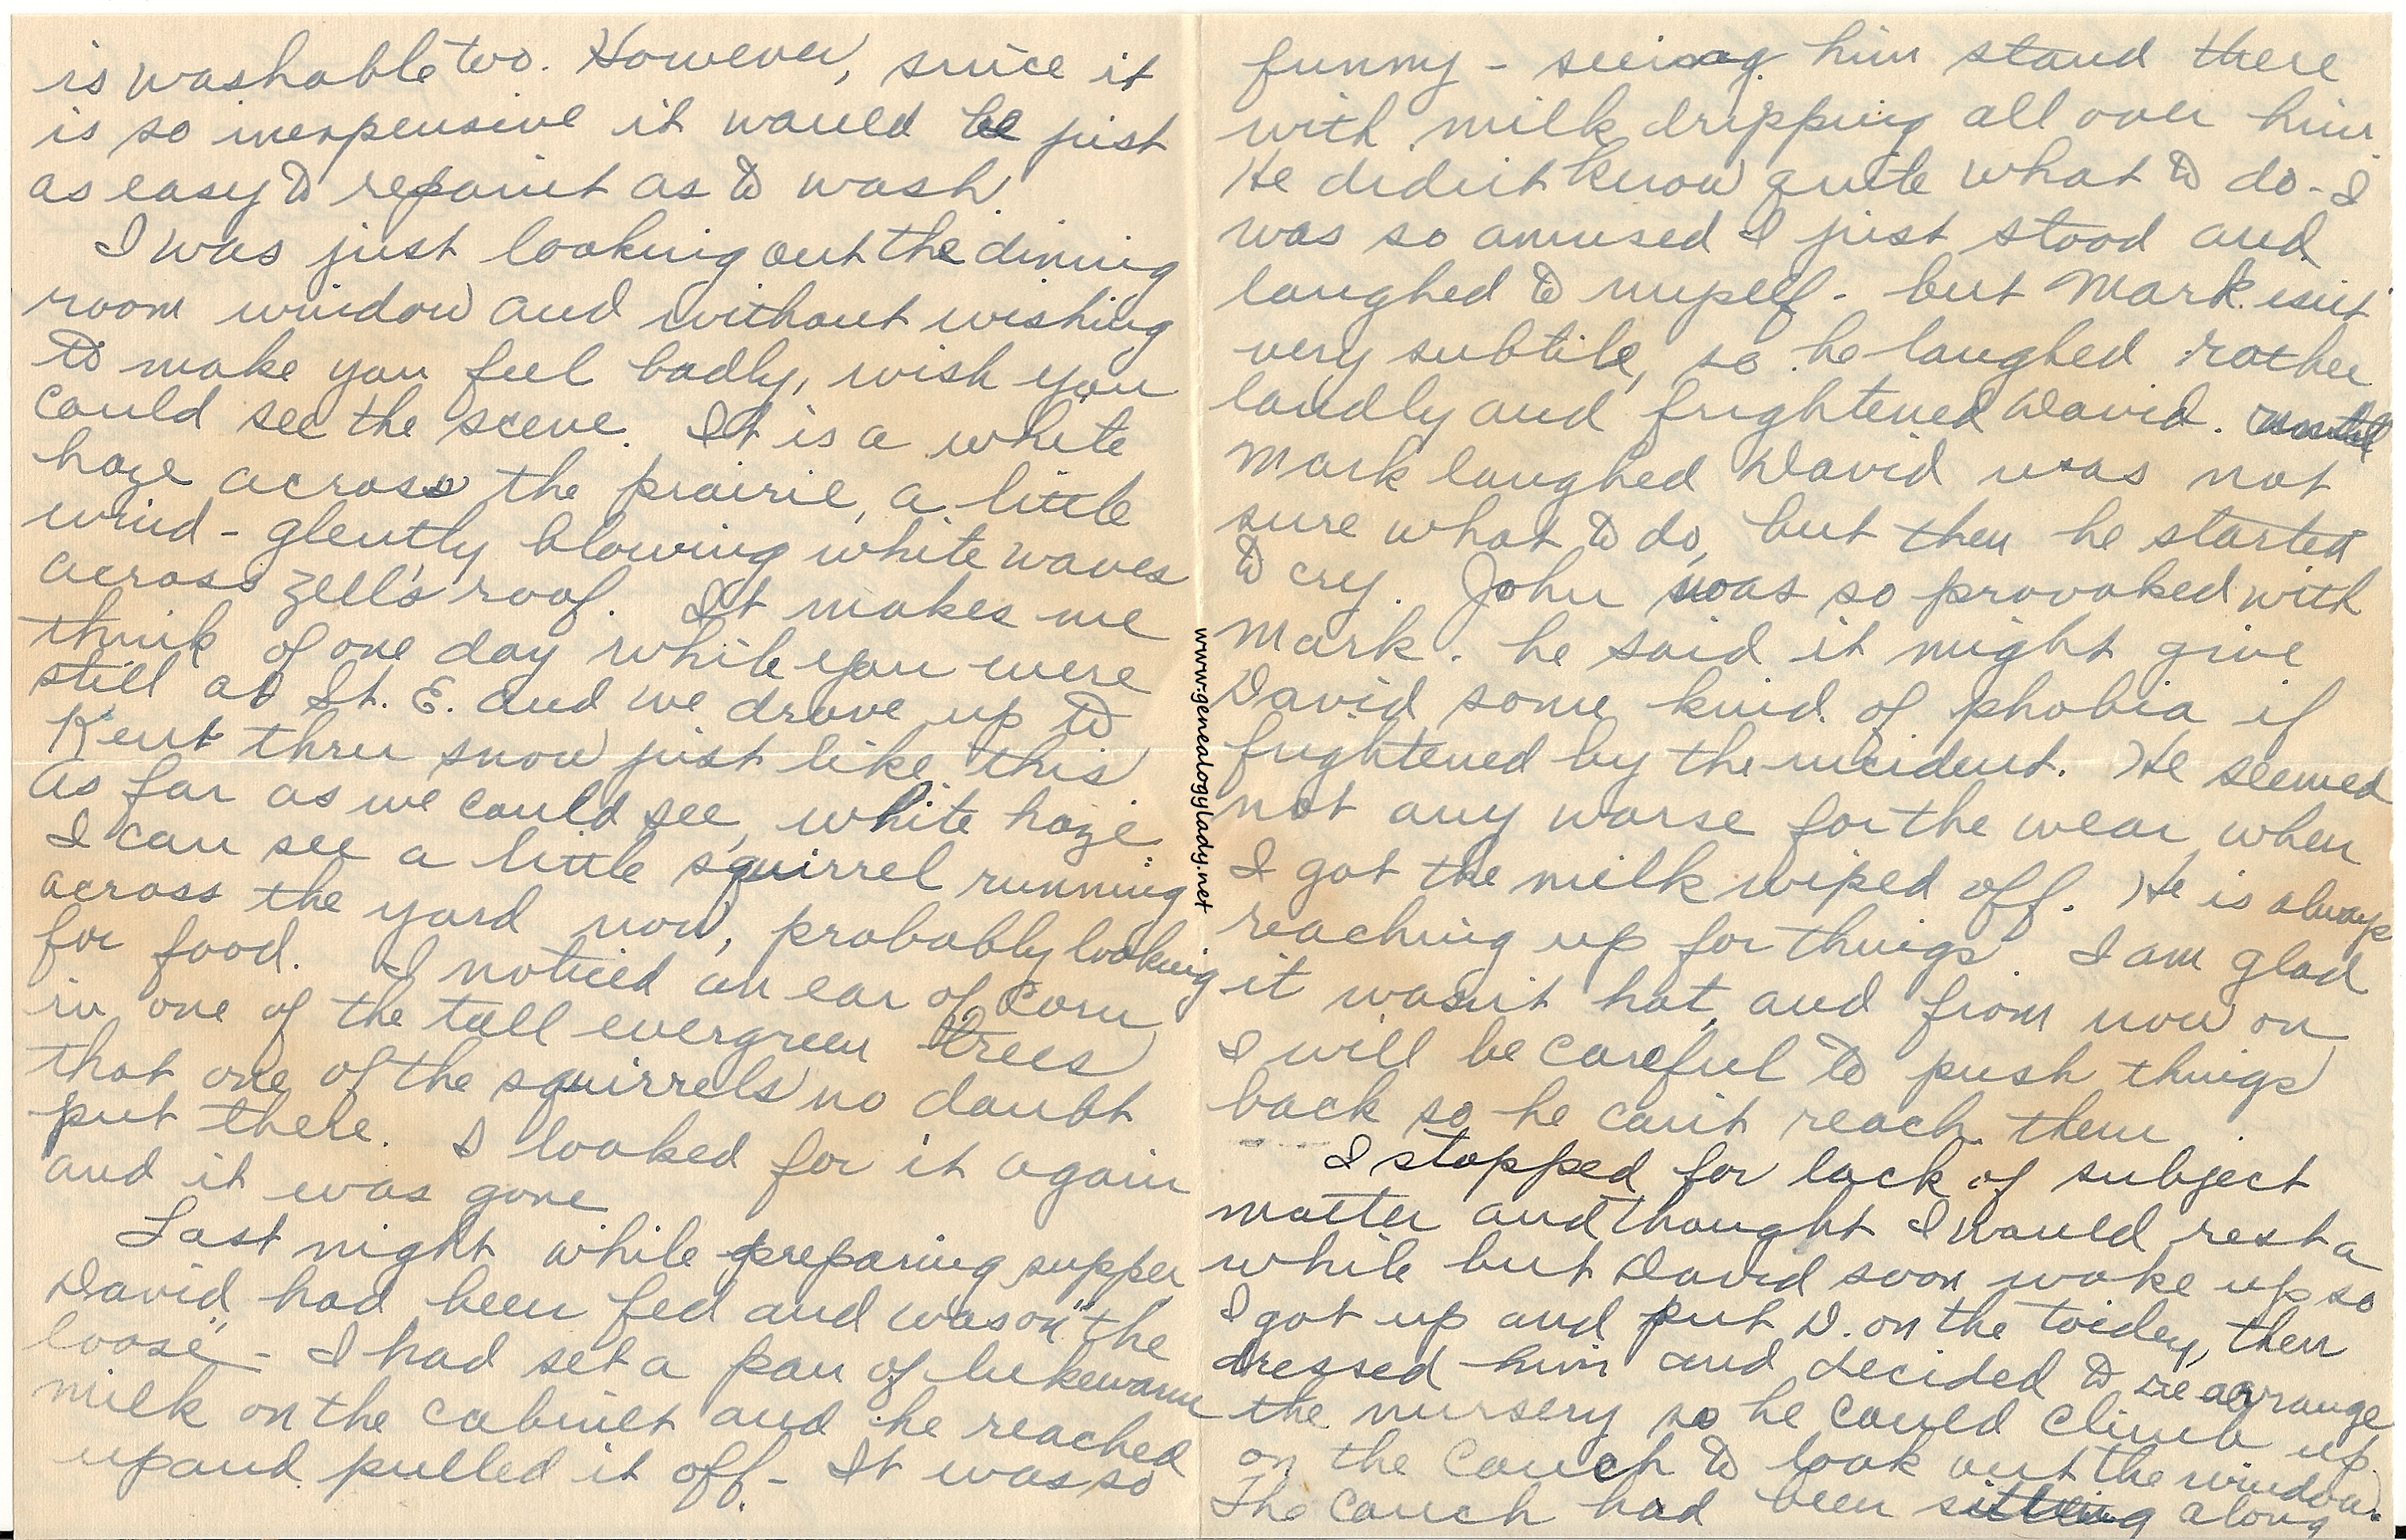 is washable too. However, since it
is so inexpensive it would be just
as easy to repaint as to wash.
I was just looking out the dining
room window and without wishing
to make you feel badly, wish you
could see the scene. It is a white
haze across the prairie, a little
wind - glently blowing white waves
across Zell's roof. It makes me
think of one day while you were
still at St. E. and we drove up to
Kent thru snow just like this
as far as we could see, white haze.
I can see a little squirrel running
across the yard now, probably looking
for food. I noticed an ear of corn
in one of the tall evergreen trees
that one of the squirrels no doubt
put there. I looked for it again
and it was gone
Last night while preparing supper
David had been fed and was on "the
loose" - I had set a pan of lukewarm
milk on the cabinet and he reached
up and pulled it off - It was so
funny - seeing him stand there
with milk dripping all over him.
He didn't know quite what to do - I
was so amused I just stood and
laughed to myself - but Mark isn't
very subtile, so he laughed rather
loudly and frightened David.
Mark laughed David was not
sure what to do, but then he started
to cry. John was so provoked with
Mark. he said it might give
David some kind of phobia if
frightened by the incident. He seemed
not any worse for the wear when
I got the milk wiped off. He is always
reaching up for things I am glad
it wasn't hot, and from now on
I will be careful to push things
back so he can't reach them
I stopped for lack of subject
matter and thought I would rest a
while but David soon woke up so
I got up and put D. on the toidey, then
dressed him and decided to rearrange
the nursery so he could climb up
on the couch to look out the window.
The couch had been sitting along
www.genealogylady.net